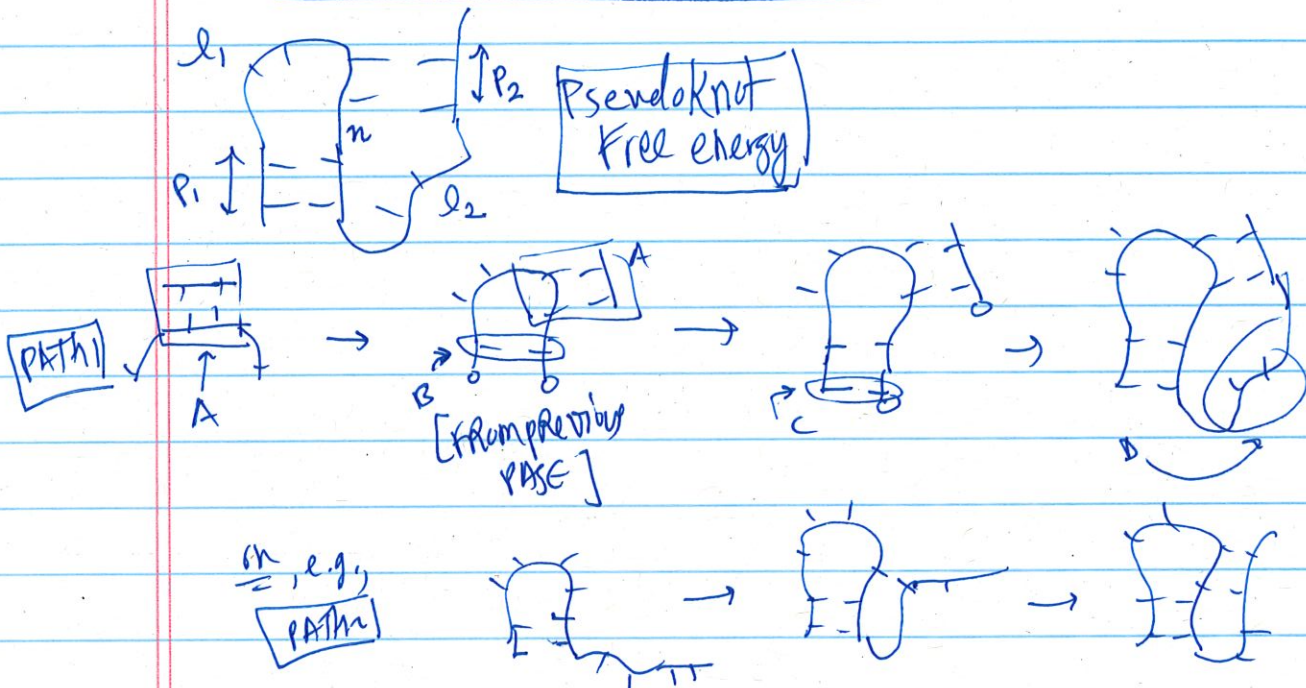 l₁
P₂
Pseudoknot
Free energy
n
P₁
l₂
PATH1
A
B
A
[FROM PREVIOUS
PAGE]
C
D
or, e.g.,
PATH2